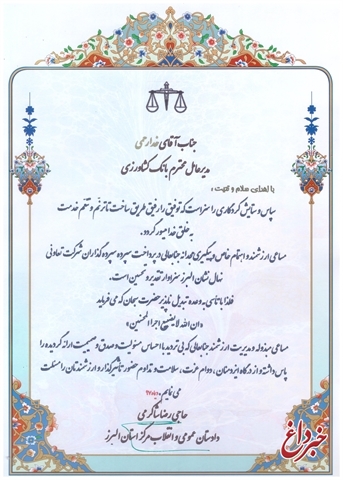 جناب آقای خدارحمی
مدیرعامل محترم بانک کشاورزی
با اهدای سلام و تحیت ؛
سپاس و ستایش کردگاری را سزاست که توفیق را رفیق طریق ساخت تا ترنم و تنغم خدمت
به خلق خدا میسور گردد.
مساعی ارزشمند و اهتمام خاص و پیگیری مجدانه جنابعالی در پرداخت سپرده سپرده گذاران شرکت تعاونی
نهال نشان البرز سزاوار تقدیر و تحسین است.
فلذا با تاسی به وعده تبدیل ناپذیر حضرت سبحان که می فرماید
«ان الله لا یضیع اجر المحسنین»
مساعی مبذوله و مدیریت ارزشمند جنابعالی که بی تردید با احساس مسئولیت و صدق و صمیمیت ارائه گردیده را
پاس داشته و از درگاه ایزد منان، دوام عزت، سلامت و تداوم حضور تاثیرگذار و ارزشمندتان را مسئلت
می نمایم
حاجی رضا شاکرمی
دادستان عمومی و انقلاب مرکز استان البرز
خبرداغ